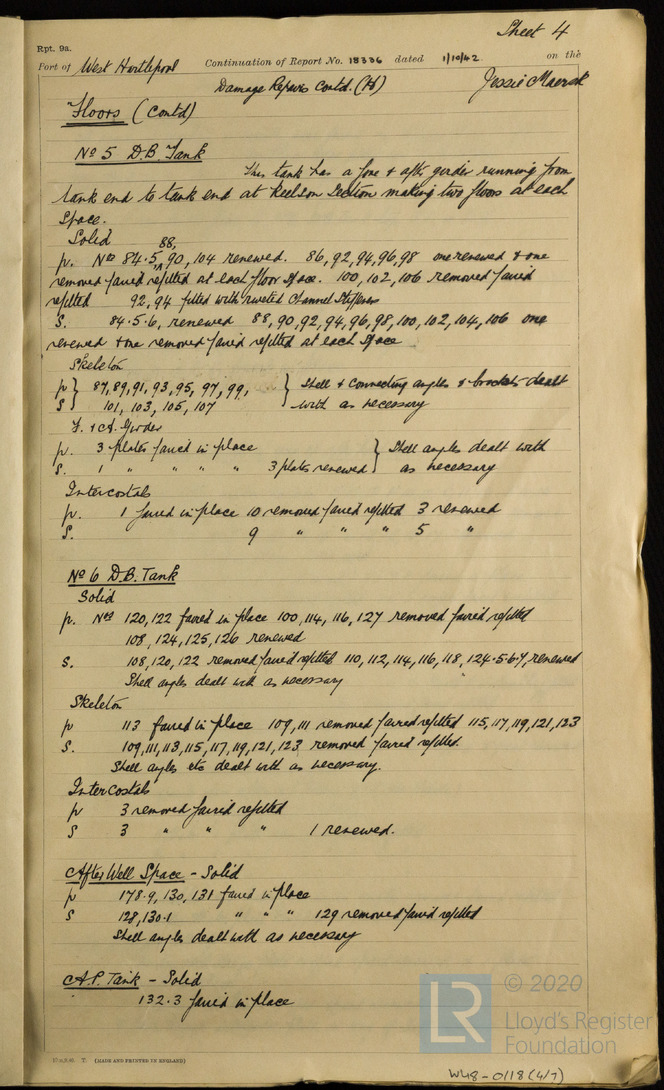 Sheet 4
Rpt. 9a.
Port of West Hartlepool Continuation of Report No. 18336 dated 1/10/42 on the
Damage Repairs Contd. (H) Jessie Maersk
Floors (Contd)
No 5 D.B. Tank
This tank has a fore & aft girder running from
tank end to tank end at keelson section making two floors at each
space.
Solid
88,
p. Nos 84.5, 90, 104 renewed. 86,92,94,96,98 one renewed & one
removed faired refitted at each floor space. 100,102,106 removed faired
refitted 92,94 fitted with riveted channel stiffeners
S. 84.5.6, renewed 88,90,92,94,96,98,100,102,104,106 one
renewed & one removed faired refitted at each space
Skeleton
p } 87,89,91,93,95,97,99, } Shell & connecting angles & brackets dealt
S } 101, 103, 105, 107 with as necessary
F. & A. Girder
p. 3 plates faired in place } Shell angles dealt with
S. 1 " " " " 3 plates renewed } as necessary
Intercostals
p. 1 faired in place 10 removed faired refitted 3 renewed
S. 9 " " " 5 "
No 6 D.B. Tank
Solid
p. Nos 120,122 faired in place 100,114,116,127 removed faired refitted
108, 124, 125, 126 renewed
S. 108,120,122 removed faired refitted 110,112,114,116,118,124.5.6.7, renewed
Shell angles dealt with as necessary
Skeleton
p 113 faired in place 109,111 removed faired refitted 115,117,119,121,123
S. 109,111,113,115,117,119,121,123 removed faired refitted.
Shell angles etc dealt with as necessary.
Intercostals
p 3 removed faired refitted
S 3 " " " 1 renewed.
After Well Space - Solid
p 178.9, 130, 131 faired in place
S 128,130.1 " " " 129 removed faired refitted
Shell angles dealt with as necessary
A.P. Tank - Solid
132.3 faired in place
T. (MADE AND PRINTED IN ENGLAND)
LR © 2020
Lloyd's Register
Foundation
W48-0118(4/7)